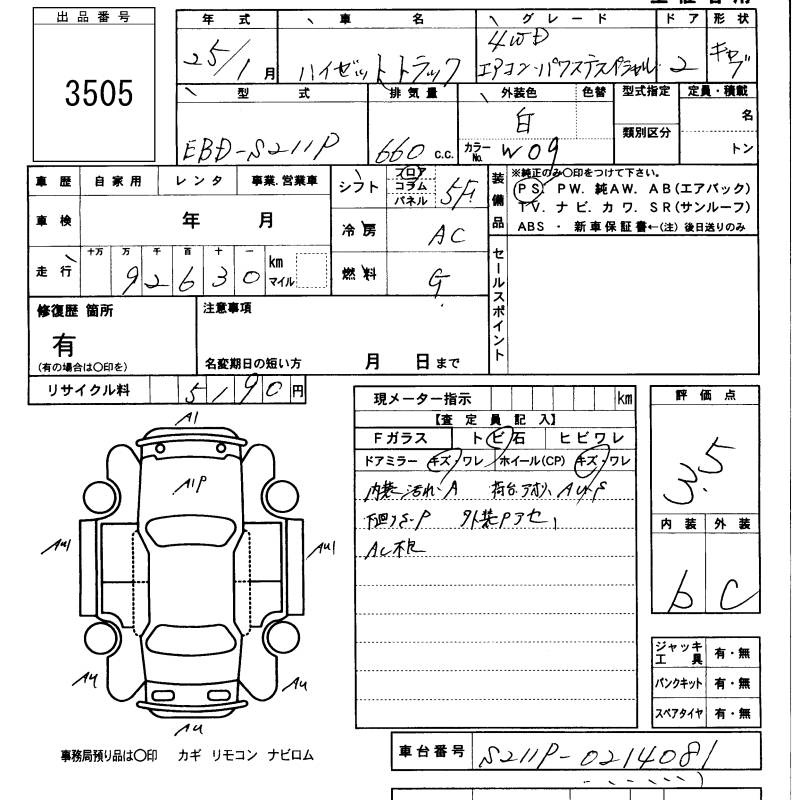 出品番号
3505
年式 車名 グレード ドア 形状
25/1月 ハイゼットトラック 4WD エアコン・パワステスペシャル 2 キャブ
型式 排気量 外装色 色替 型式指定 定員・積載
EBD-S211P 660 c.c. 白 カラーNo. W09 類別区分 名 トン
車歴 自家用 レンタ 事業.営業車
車検 年 月
走行 十万 万 千 百 十 一
92630 km マイル
シフト フロア コラム パネル 5F
冷房 AC
燃料 G
装備品
※純正のみ〇印をつけて下さい。
PS. PW. 純AW. AB(エアバック)
TV. ナビ. カワ. SR(サンルーフ)
ABS ・ 新車保証書←(注) 後日送りのみ
セールスポイント
修復歴 箇所
有
(有の場合は〇印を)
注意事項
名変期日の短い方 月 日まで
リサイクル料 5190円
現メーター指示 km
【査定員記入】
Fガラス トビ石 ヒビワレ
ドアミラー キズ・ワレ ホイール(CP) キズ・ワレ
内装ヨゴレ・A 荷台,アオリ,AU・P
下回りS・P 外装Pアセ,
AC不良
評価点
3.5
内装 外装
b C
A1
A1P
AU1
AU1
AU
AU
AU
ジャッキ工具 有・無
パンクキット 有・無
スペアタイヤ 有・無
事務局預り品は〇印 カギ リモコン ナビロム
車台番号 S211P-0214081